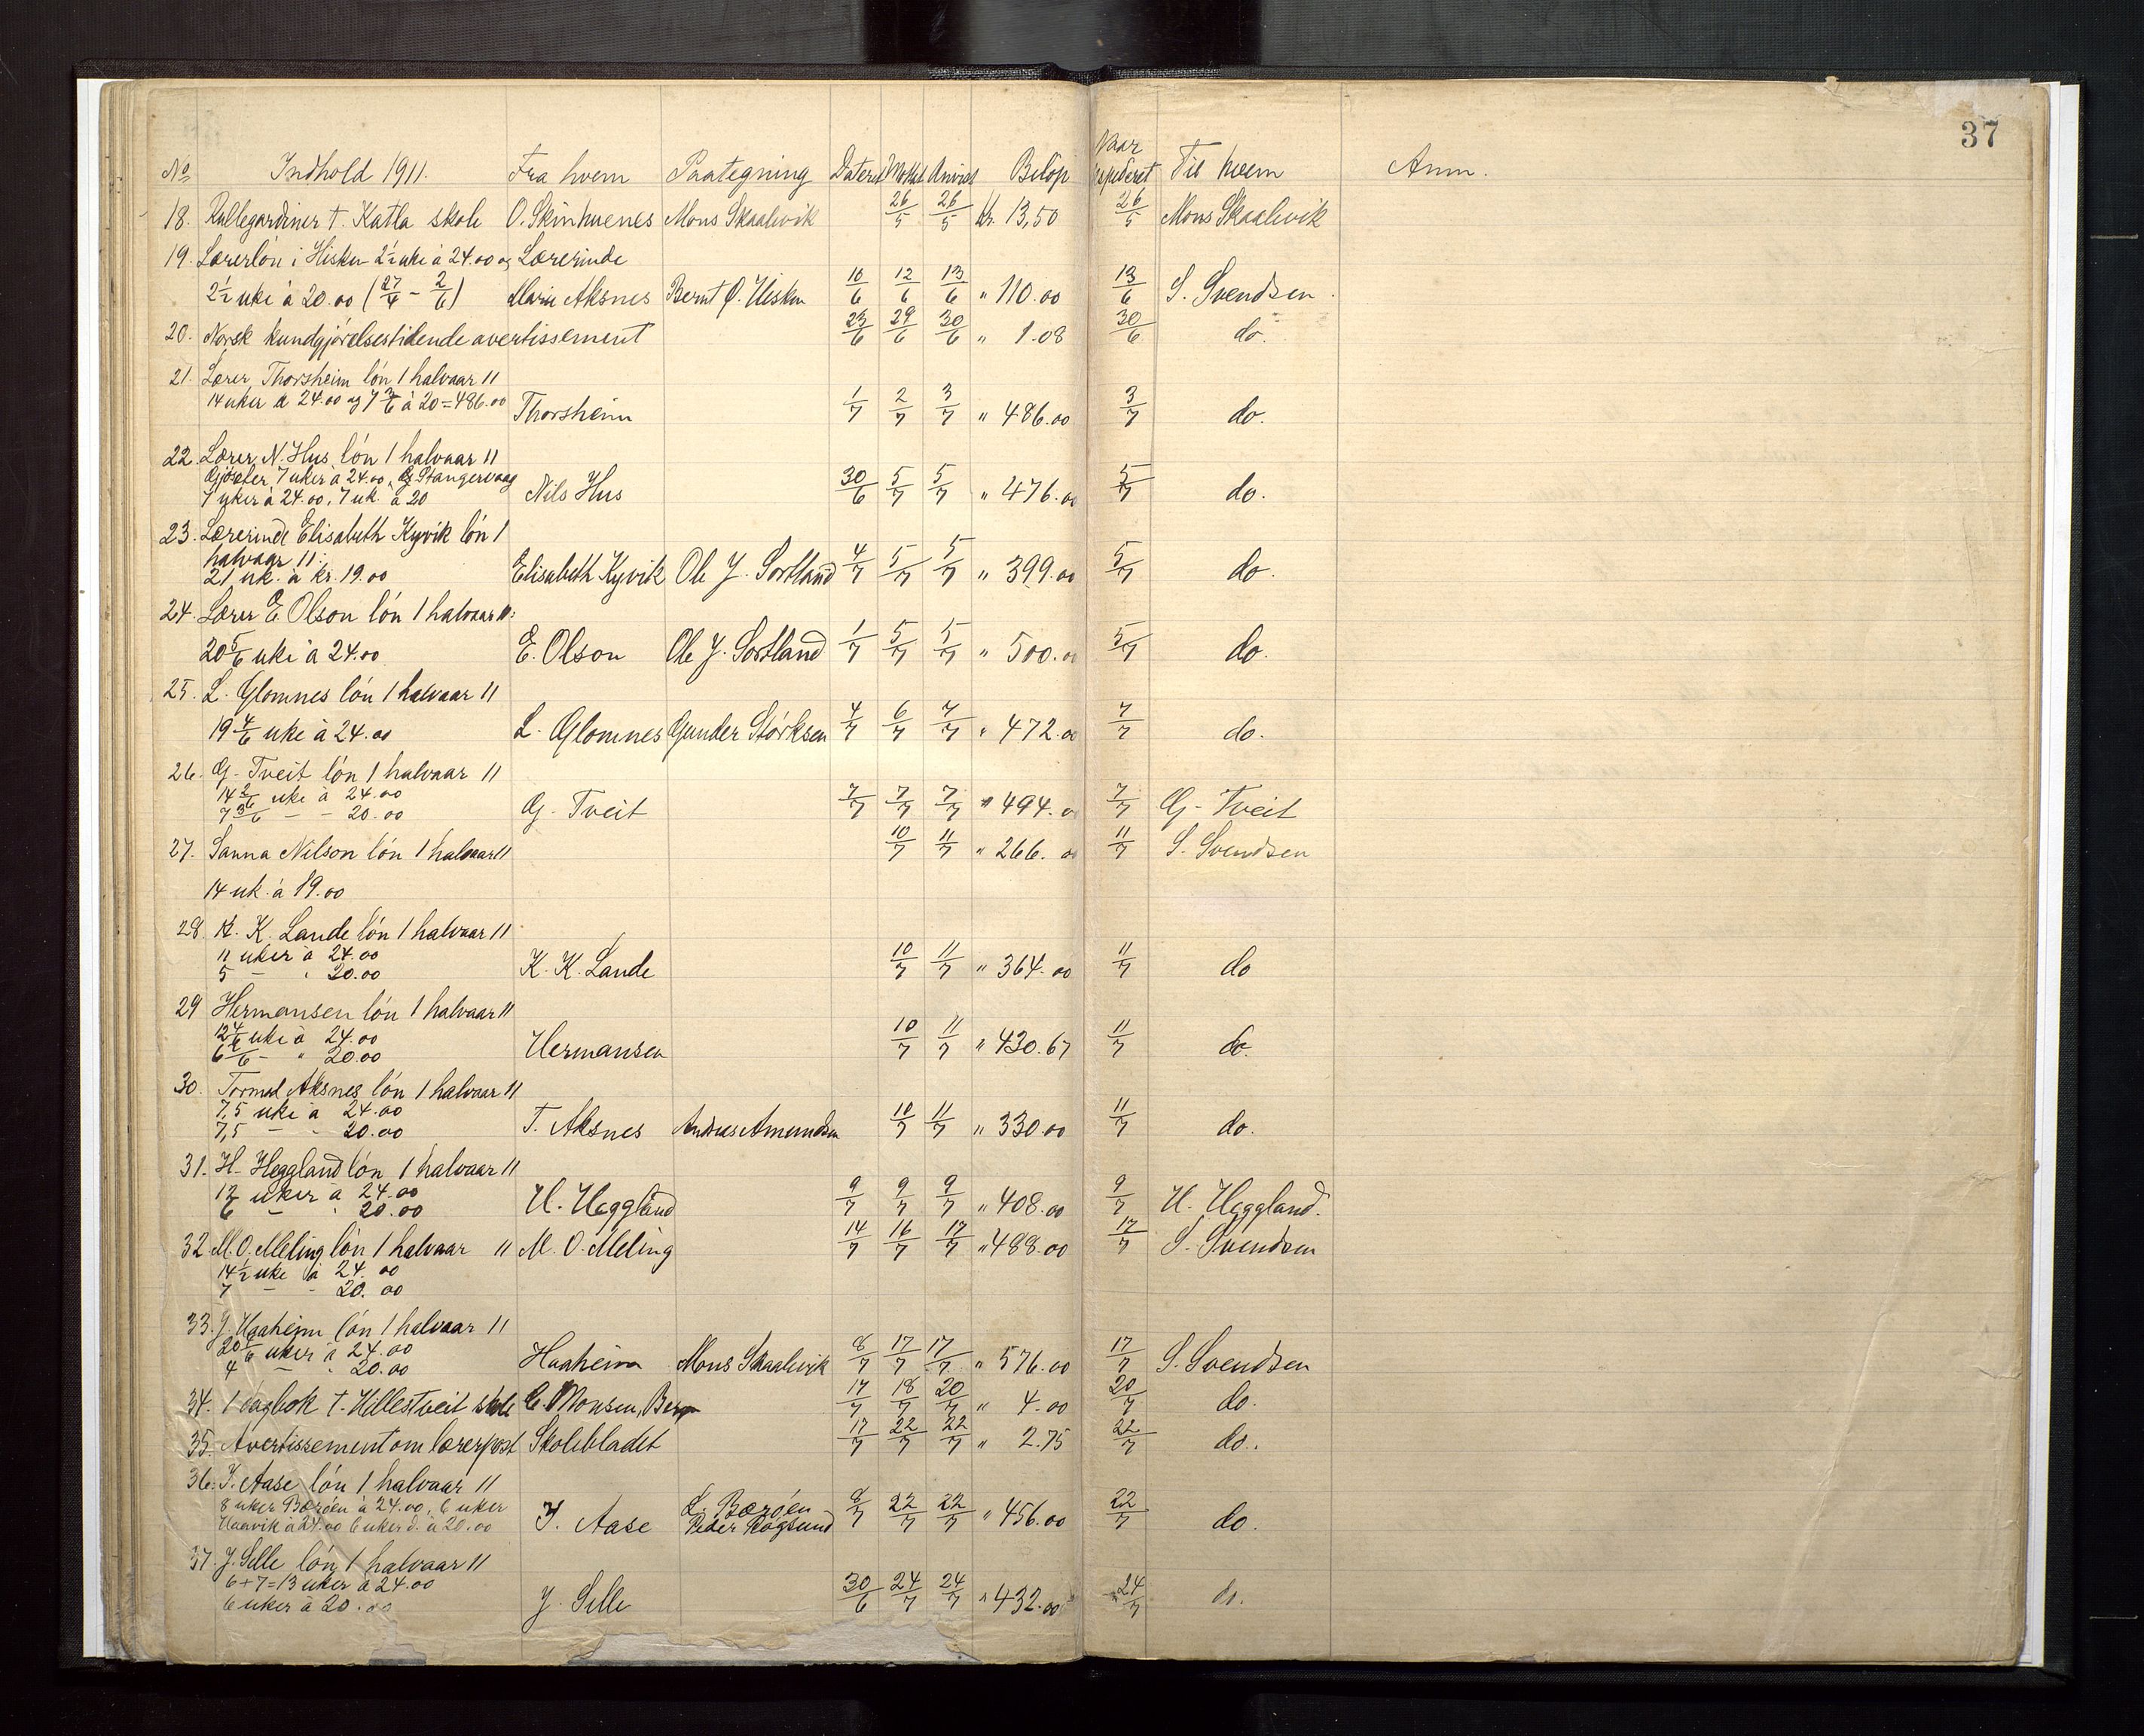 37
No Indhold 1911. Fra hvem Paategning Dateret Anvist Beløp Naar Til hvem Anm.
18. Rullegardiner t. Katla skole O. Skimhuenes Mons Skaalevik 26/5 26/5 kr. 13,50 26/5 Mons Skaalevik
19. Lærerløn i Hisken 2½ uke à 24.00 og Lærerinde
2½ uke à 20.00 (27/4 - 2/6) Marie Aksnes Bernt Ø. Hisken 10/6 12/6 13/6 " 110.00 13/6 S. Svendsen.
20. Norsk kundgjørelsestidende avertissement 23/6 29/6 30/6 " 1.08 30/6 do.
21. Lærer Thorsheim løn 1 halvaar 11
14 uker à 24.00 og 7 3/6 à 20 = 486.00 Thorsheim 1/7 2/7 3/7 " 486.00 3/7 do.
22. Lærer N. Hus løn 1 halvaar 11
7 uker à 24.00, Og Stangervaag
7 uker à 24.00, 7 uk. à 20 Nils Hus 30/6 5/7 5/7 " 476.00 5/7 do.
23. Lærerinde Elisabeth Kyvik løn 1
halvaar 11:
21 uk. à kr. 19.00 Elisabeth Kyvik Ole J. Sortland 4/7 5/7 5/7 " 399.00 5/7 do.
24. Lærer E. Olson løn 1 halvaar 11:
20 5/6 uke à 24.00 E. Olson Ole J. Sortland 1/7 5/7 5/7 " 500.00 5/7 do.
25. L. Glomnes løn 1 halvaar 11
19 4/6 uke à 24.00 L. Glomnes Gunder Størksen 4/7 6/7 7/7 " 472.00 7/7 do.
26. G. Tveit løn 1 halvaar 11
14 2/6 uke à 24.00
7 3/6 — - 20.00 G. Tveit 7/7 7/7 7/7 " 494.00 7/7 G. Tveit
27. Sanna Nilson løn 1 halvaar 11 10/7 11/7 " 266.00 11/7 S. Svendsen
14 uk. à 19.00
28. K. K. Lande løn 1 halvaar 11
11 uker à 24.00
5 — " 20.00 K. K. Lande 10/7 11/7 " 364.00 11/7 do
29 Hermansen løn 1 halvaar 11
12 4/6 uke à 24.00
6 2/6 - " 20.00 Hermansen 10/7 11/7 " 430.67 11/7 do.
30. Tormod Aksnes løn 1 halvaar 11
7,5 uke à 24.00
7,5 — - 20.00 T. Aksnes Andreas Amundsen 10/7 11/7 " 330.00 11/7 do.
31. H. Heggland løn 1 halvaar 11
12 uker à 24.00
6 — " 20.00 H. Heggland 9/7 9/7 9/7 " 408.00 9/7 H. Heggland.
32. M. O. Meling løn 1 halvaar 11 M. O. Meling 14/7 16/7 17/7 " 488.00 17/7 S. Svendsen
14½ uke à 24.00
7 — - 20.00
33. J. Haaheim løn 1 halvaar 11
20 4/6 uker à 24.00
4 — " 20.00 Haaheim Mons Skaalevik 8/7 17/7 17/7 " 576.00 17/7 S. Svendsen
34. 1 dagbok t. Hillestveit skole C. Monsen, 17/7 18/7 20/7 " 4.00 20/7 do.
35. Avertissement om lærerpost Skolebladet 17/7 22/7 22/7 " 2.75 22/7 do.
36. J. Aase løn 1 halvaar 11
8 uker Bærøen à 24.00, 6 uker L. Bærøen -
Haavik à 24.00 6 uker d. à 20.00 J. Aase Peder Røgsund 8/7 22/7 22/7 " 456.00 22/7 do.
37. J. Selle løn 1 halvaar 11
6+7=13 uker à 24.00
6 uker à 20.00 J. Selle 30/6 24/7 24/7 " 432.00 24/7 do.